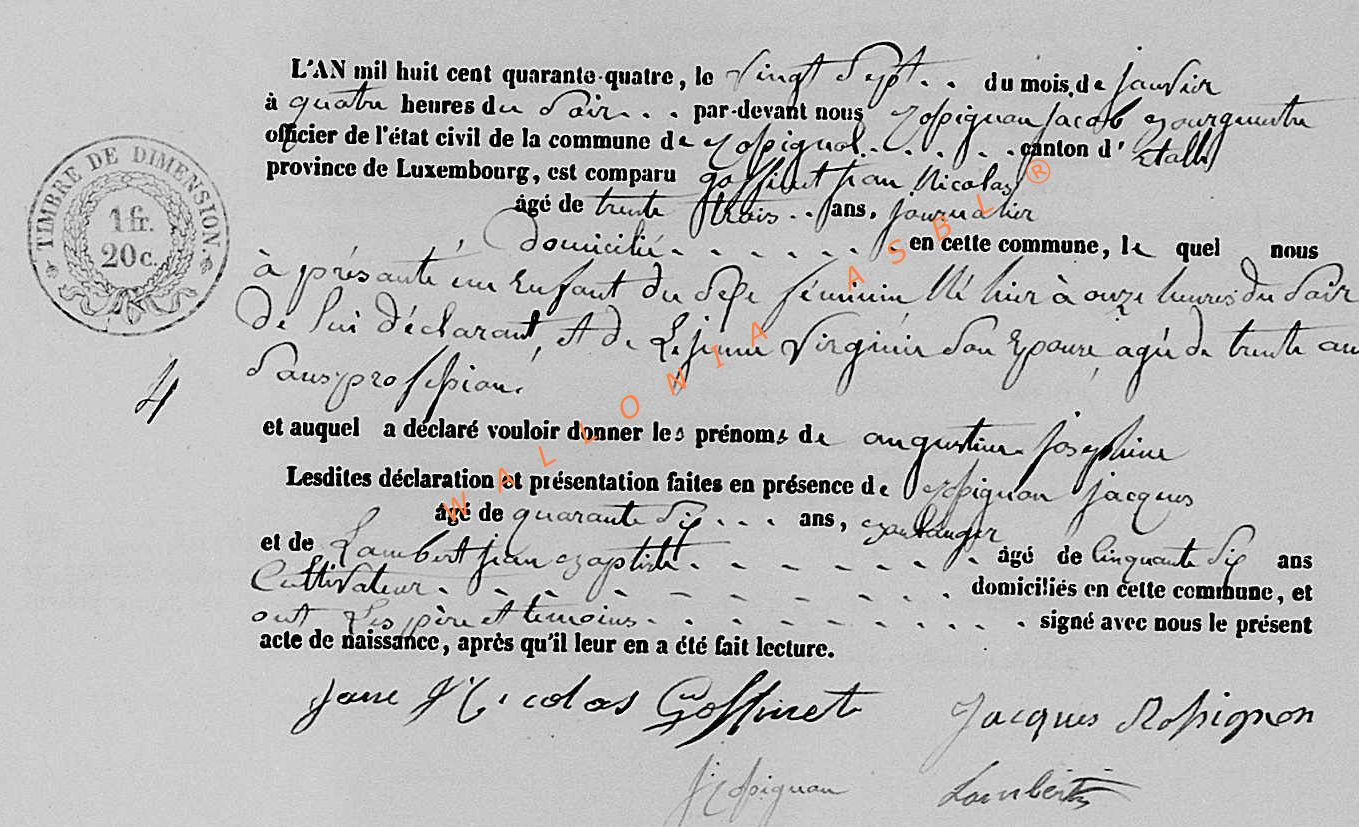 L'AN mil huit cent quarante-quatre, le vingt sept du mois de janvier
à quatre heures du soir par-devant nous Rossignon Jacob Bourguestre
officier de l'état civil de la commune de Rossignol canton d'Etalle
province de Luxembourg, est comparu Goffinet jean Nicolas
âgé de trente trois ans, journalier
domicilié en cette commune, le quel nous
à présanté un Enfant du Sexe féminin Né hier à onze heures du Soir
De lui déclarant, et de Lejeune Virginie Son Epouse, agée de trente ans
Sans profession.
et auquel a déclaré vouloir donner les prénoms de augustine Josephine
Lesdites déclaration et présentation faites en présence de Rossignon jacques
âgé de quarante Six ans, Boulanger
et de Lambert jean Baptiste âgé de Cinquante Six ans
Cultivateur domiciliés en cette commune, et
ont Les père et témoins signé avec nous le présent
acte de naissance, après qu'il leur en a été fait lecture.
Nicolas Goffinet Jacques Rossignon
Rossignon Lambert
TIMBRE DE DIMENSION.
1 fr.
20 c.
4
WALLONIA ASBL ®